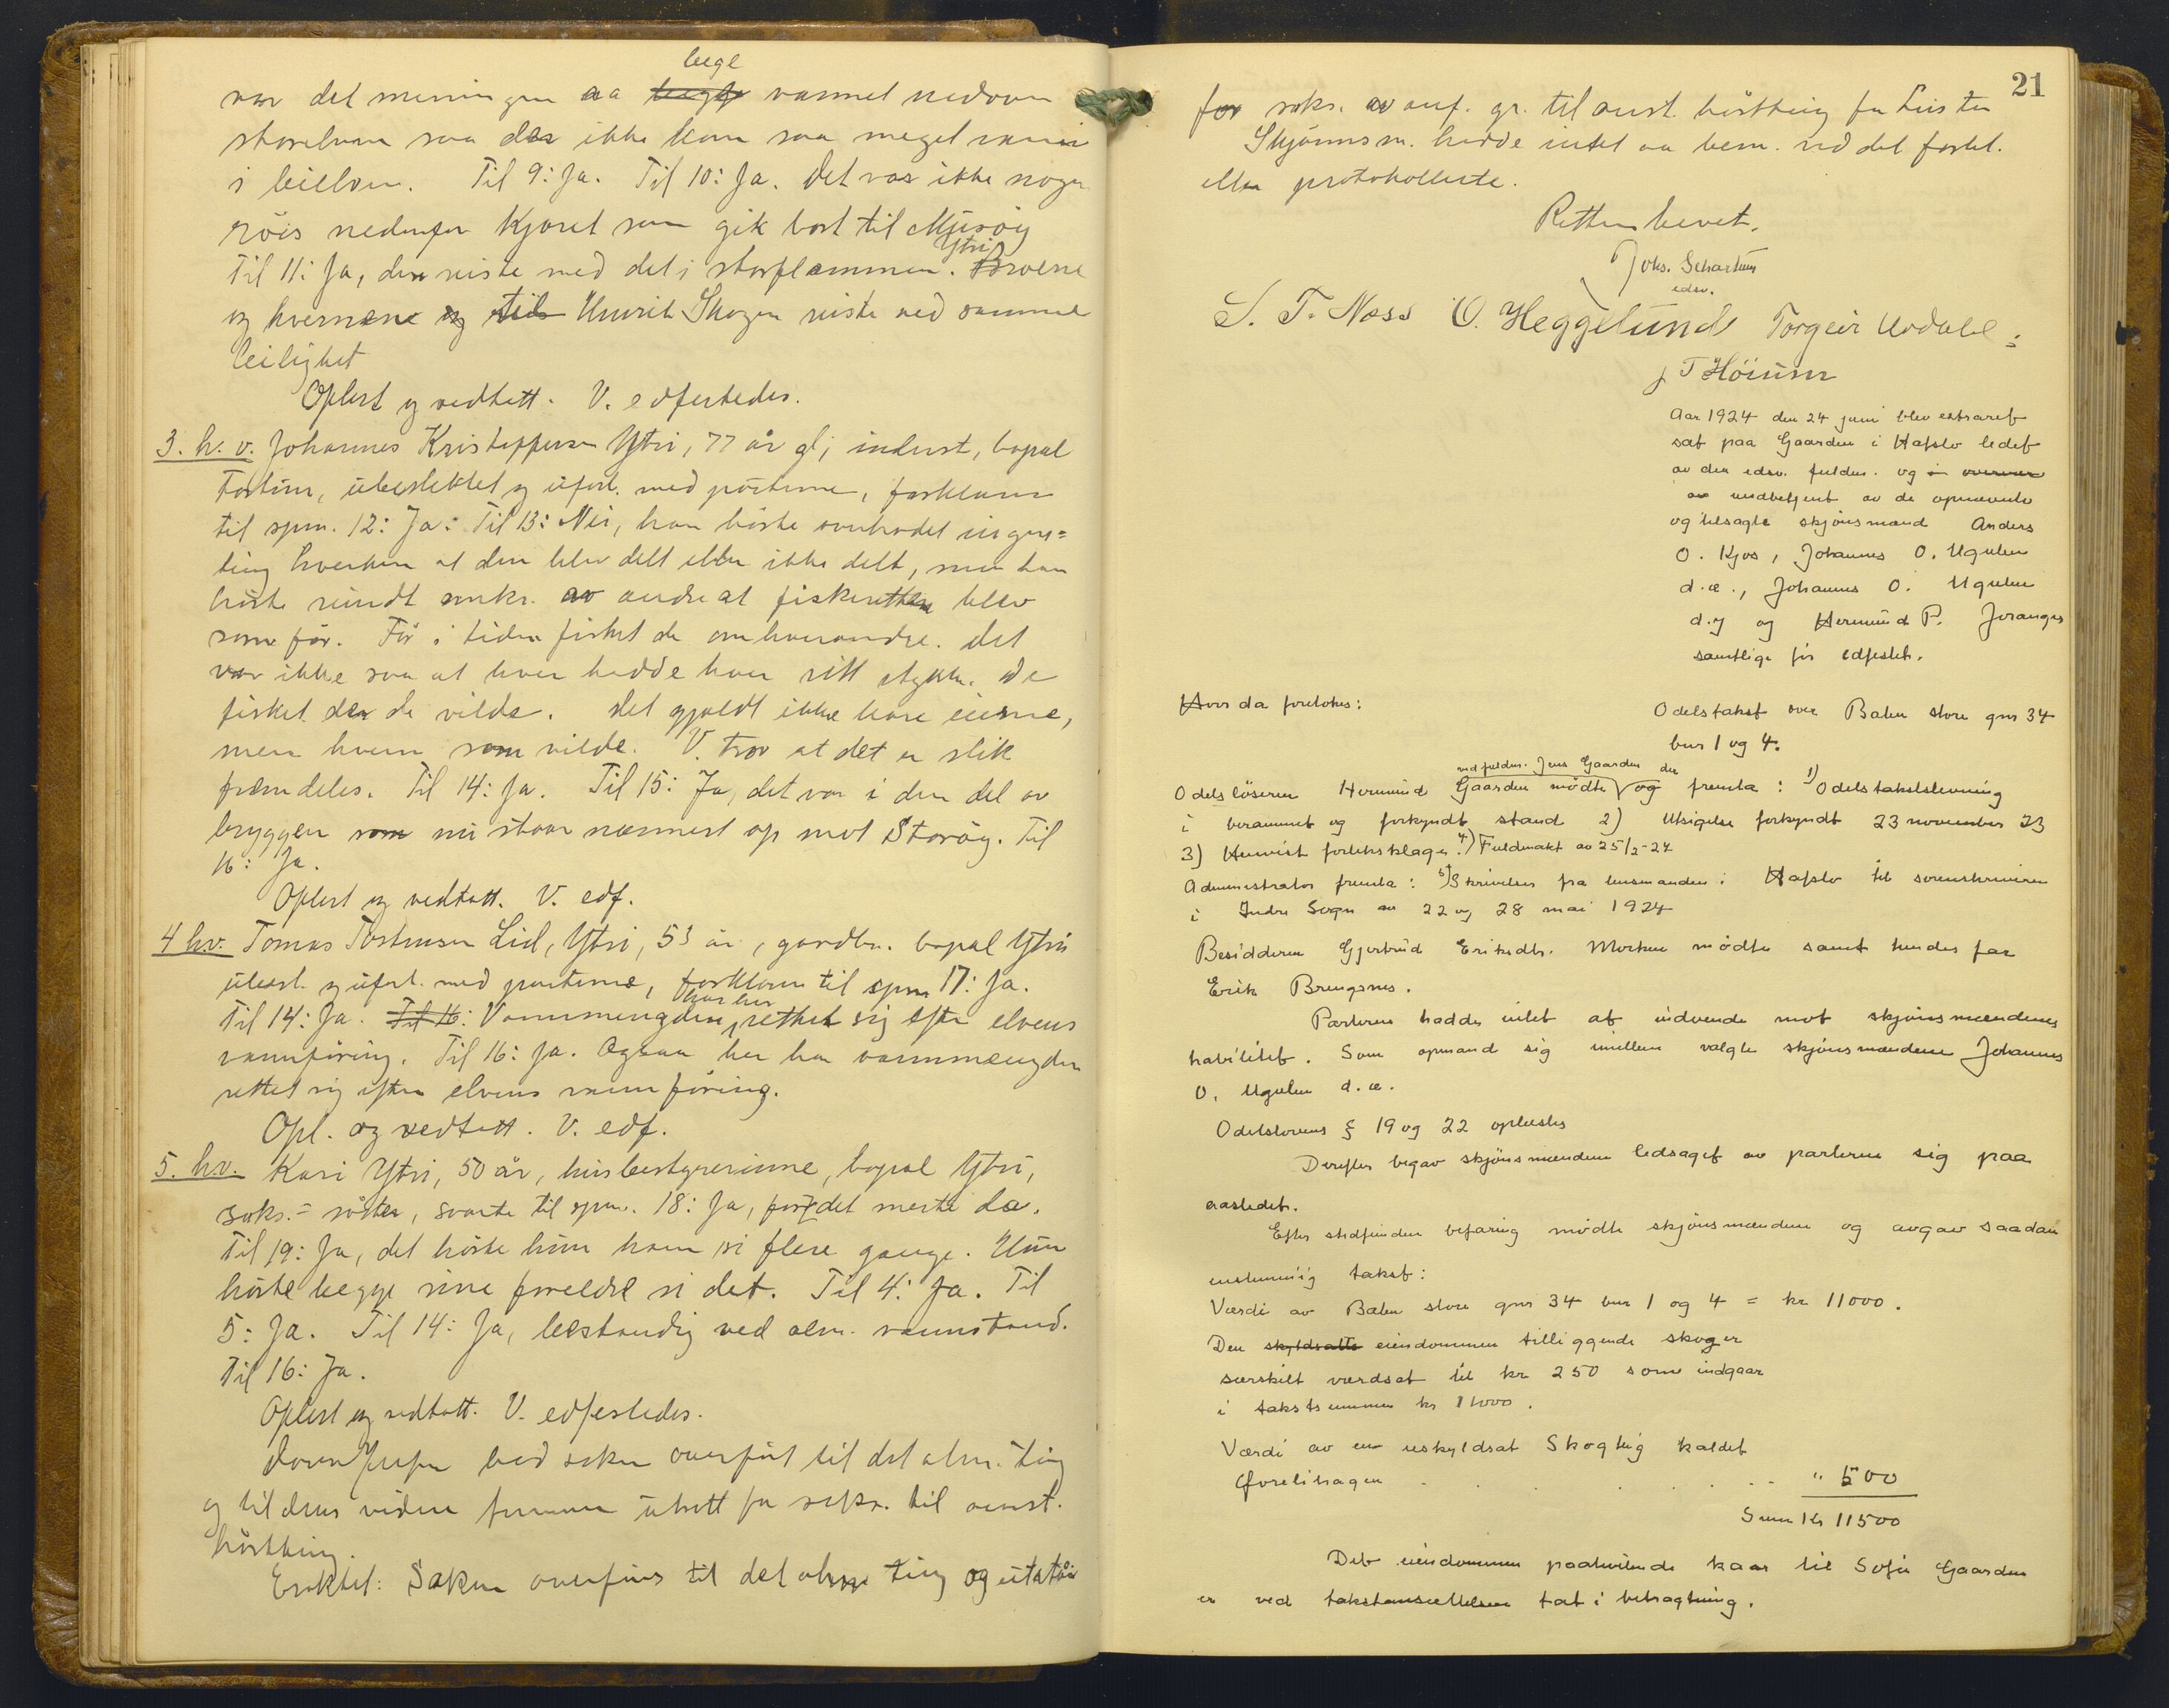 lege
var det meningen aa vannet nedover
storelven saa der ikke kom saa meget vann
i leielven. Til 9: Ja. Til 10: Ja. Det var ikke nogen
röis nedenfor Kjæret som gik bort til Mjisöy
Til 11: Ja, den reiste med det i storflommen. Ytri Broene
og kvernene og til Unurit Skogen reiste ved samme
leilighet
Oplest og vedtatt. V. edfestedes.
3. h. v. Johannes Kristoffersen Ytri, 77 år gl; inderst, bopæl
Fortun, ubeslektet og uforl. med parterne, forklarer
til spm. 12: Ja: Til 13: Nei, han hörte overhodet ingen=
ting hverken at den blev delt eller ikke delt, men han
hörte rundt omkr. av andre at fiskeretten blev
som för. För i tiden fisket de om hverandre. Det
var ikke saa at hver hadde hver sitt stykke. De
fisket der de vilde. Det gjaldt ikke bare eierne,
men hvem som vilde. V. tror at det er slik
fremdeles. Til 14: Ja. Til 15: Ja, det var i den del av
bryggen som nu staar nærmest op mot Storöy. Til
16: Ja.
Oplest og vedtatt. V. edf.
4 h.v. Tomas Tostensen Lid, Ytri, 53 år, gardbr. bopæl Ytri
ubesl. og uforl. med parterne, forklarer til spm 17: Ja.
Til 14: Ja. Til 16: Vannmengden har her rettet sig efter elvens
vannföring. Til 16: Ja. Ogsaa her har vannmængden
rettet sig efter elvens vannföring.
Opl. og vedtatt. V. edf.
5. h.v. Kari Ytri, 50 år, husbestyrerinne, bopæl Ytri,
saks.= söster, svarte til spm. 18: Ja, for det meste da.
Til 19: Ja, det hörte hun ham si flere gange. Hun
hörte begge sine foreldre si det. Til 4: Ja. Til
5: Ja. Til 14: Ja, bestandig ved alm. vannstand.
Til 16: Ja.
Oplest og vedtatt. V. edfestedes.
bad saken overfört til det alm. ting
og til dens videre fremme utsatt for saks. til avst.
hörtting.
Eroktet: Saken overføres til det alm. ting og utstår
21
for saks. av anf. gr. til avst. hörtting for Luster
Skjønnsm. hadde intet aa bem. ved det fortel.
eller protokollerte.
Retten hevet.
Johs. Schartum
edsv.
S. T. Næss O. Heggelund Torgeir Urdahl
J T Höium
Aar 1924 den 24 juni blev extraret
sat paa Gaarden i Hafslo ledet
av den edsv. fuldm. og i overvær
av undbetjent av de opnævnte
og tilsagte skjönsmænd Anders
O. Kjos, Johannes O. Ugulen
d.æ., Johannes O. Ugulen
d.y og Hermund P. Joranger
samtlige för edfestet.
Hvor da foretokes:
Odelstakst over Balen store gnr 34
bnr 1 og 4.
ved fuldm. Jens Gaarden der
Odelslöseren Hermund Gaarden mödte og fremla: 1) Odelstakststevning
i berammet og forkyndt stand 2) Utsigelse forkyndt 23 november 23
3) Henvist forliksklage. 4) Fuldmakt av 25/2-24
Administrator fremla: 5) Skrivelser fra lensmanden i Hafslo til sorenskriveren
i Indre Sogn av 22 og 28 mai 1924
Besidderen Gjertrud Eriksdtr. Morken mödte samt hendes far
Erik Brengsnes.
Parterne hadde intet at indvende mot skjönsmændenes
habilitet. Som opmand sig imellem valgte skjönsmændene Johannes
O. Ugulen d.æ.
Odelslovens § 19 og 22 oplæstes
Derefter begav skjönsmændene ledsaget av parterne sig paa
aastedet.
Efter stedfunden befaring mödte skjönsmændene og avgav saadan
enstemmig takst:
Værdi av Balen store gnr 34 bnr 1 og 4 = kr 11000.
Den skyldsatte eiendommen tilliggende skog er
særskilt værdsat til kr 250 som indgaar
i takstsummen kr 11000.
Værdi av en uskyldsat Skogteig kaldet
Forelihagen . . . . . " 500
Sum Kr 11500
Det eiendommen paahvilende kaar til Sofie Gaarden
er ved takstansættelsen tat i betragtning.